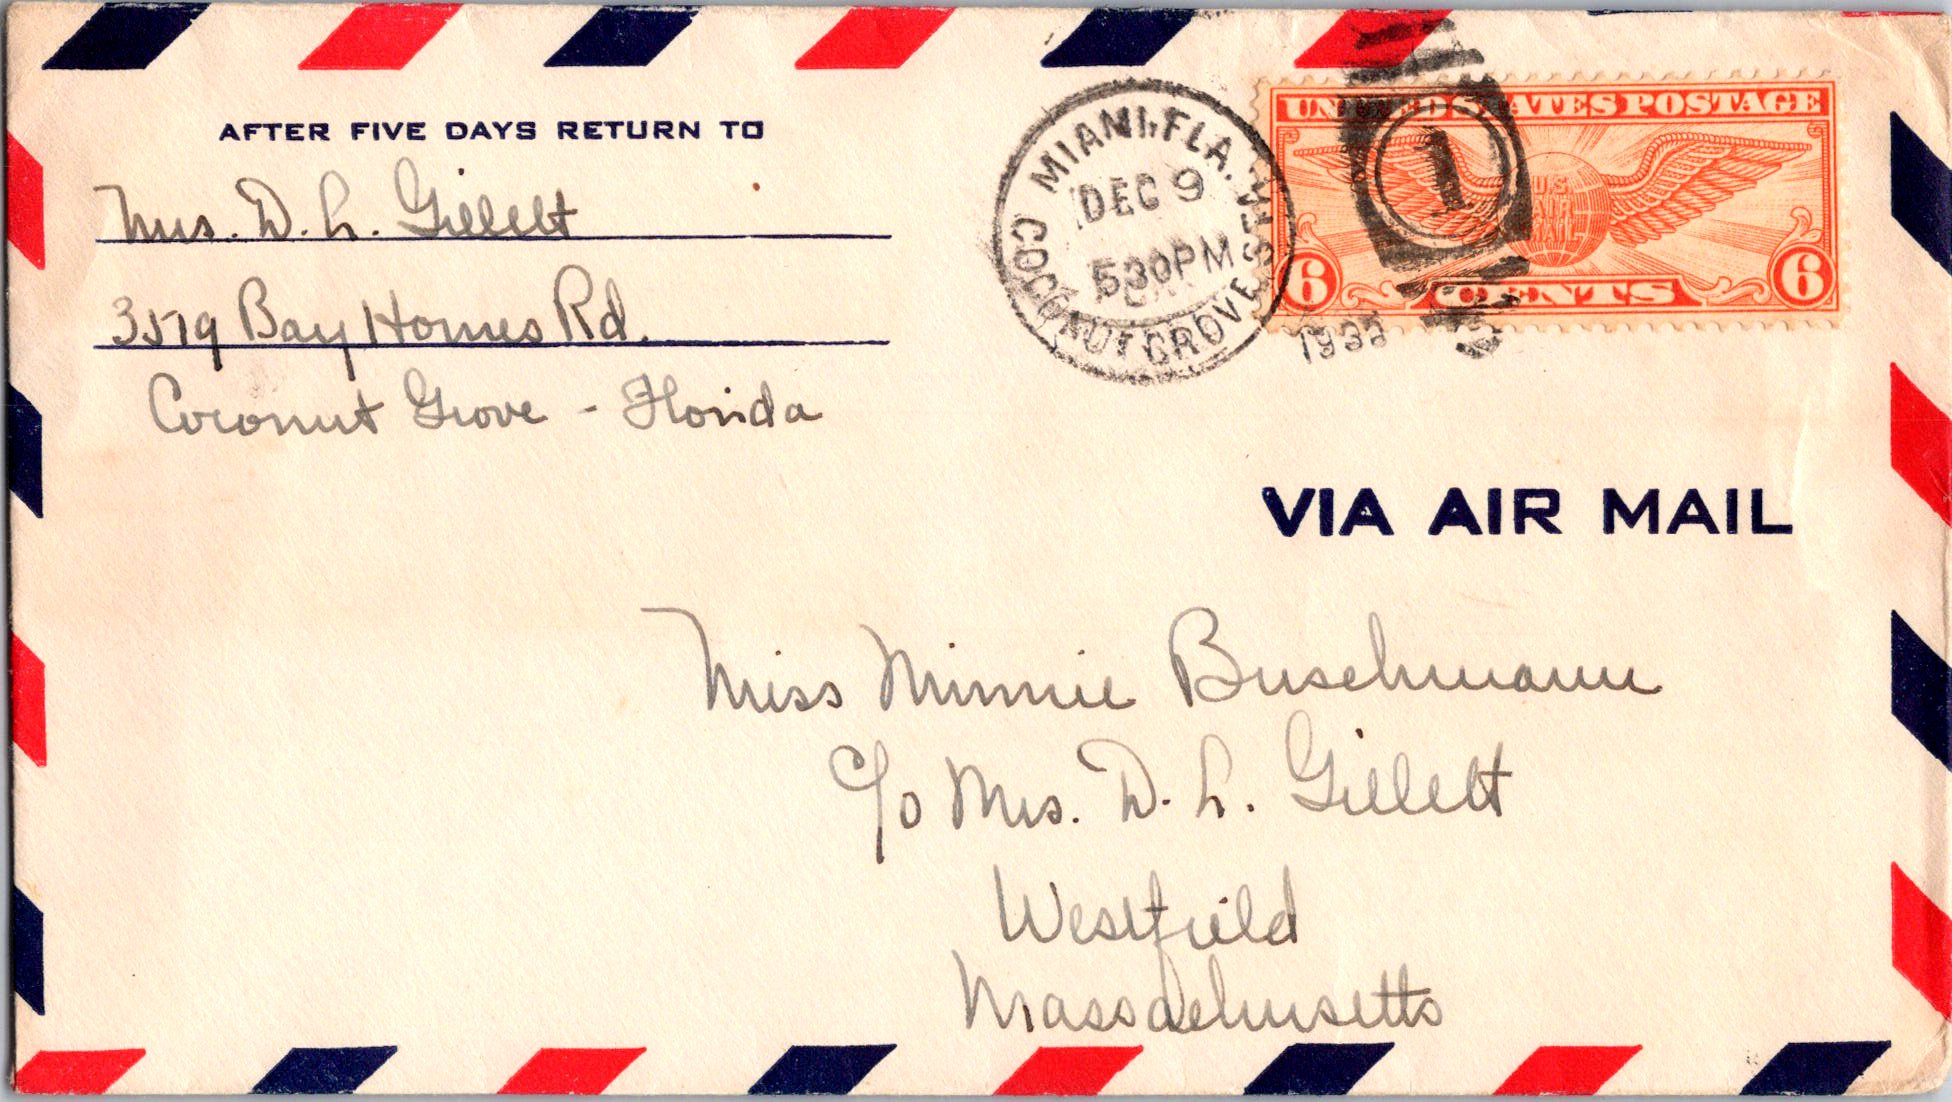 AFTER FIVE DAYS RETURN TO
Mrs. D. L. Gillett
3519 Bay Homes Rd.
Coconut Grove - Florida
MIAMI, FLA.
COCOANUT GROVE STA.
DEC 9
530PM
1
UNITED STATES POSTAGE
U.S.
AIR
MAIL
6 CENTS 6
VIA AIR MAIL
Miss Minnie Buschmann
c/o Mrs. D. L. Gillett
Westfield
Massachusetts